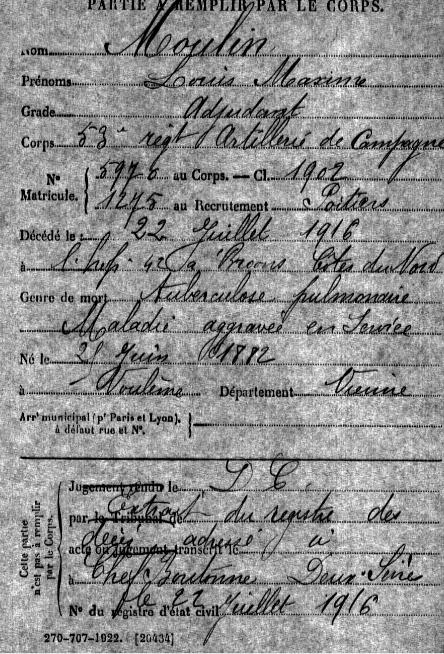 PARTIE À REMPLIR PAR LE CORPS.
Nom Moulin
Prénoms Louis Maxime
Grade Adjudant
Corps 53e régt Artillerie de Campagne
N° Matricule. 5976 au Corps. — Cl. 1902
1275 au Recrutement Poitiers
Décédé le 22 Juillet 1916
à l'hop. 42 à Côtes du Nord
Genre de mort Tuberculose pulmonaire
Maladie aggravée en Service
Né le Juin 1882
à Voulême Département Vienne
Arrt municipal (pr Paris et Lyon), à défaut rue et N°.
Cette partie n'est pas à remplir par le Corps.
Jugement rendu le D C
par le Tribunal de Extrait du registre des
acte ou jugement transcrit le décès adressé à
à Chef-Boutonne Deux-Sèvres
N° du registre d'état civil le 22 Juillet 1916
270-708-1922. [26434]